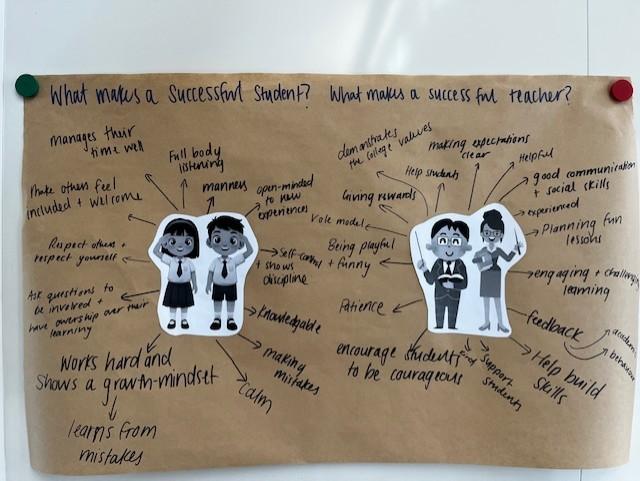 What makes a Successful Student?
manages their
time well
Full body
listening
manners
open-minded
to new
experiences
Make others feel
included + welcome
Respect others +
respect yourself
Self-control
+ shows
discipline
Ask questions to
be involved +
have ownership over their
learning
Knowledgable
making
mistakes
Calm
Works hard and
shows a growth-mindset
learns from
mistakes
What makes a successful teacher?
demonstrates
the college values
making expectations
clear
Helpful
Help students
good communication
+ social skills
Giving rewards
experienced
role model
Planning fun
lessons
Being playful
+ funny
engaging + challenging
learning
Patience
feedback
academic
behaviour
encourage students
to be courageous
Support
students
Help build
skills